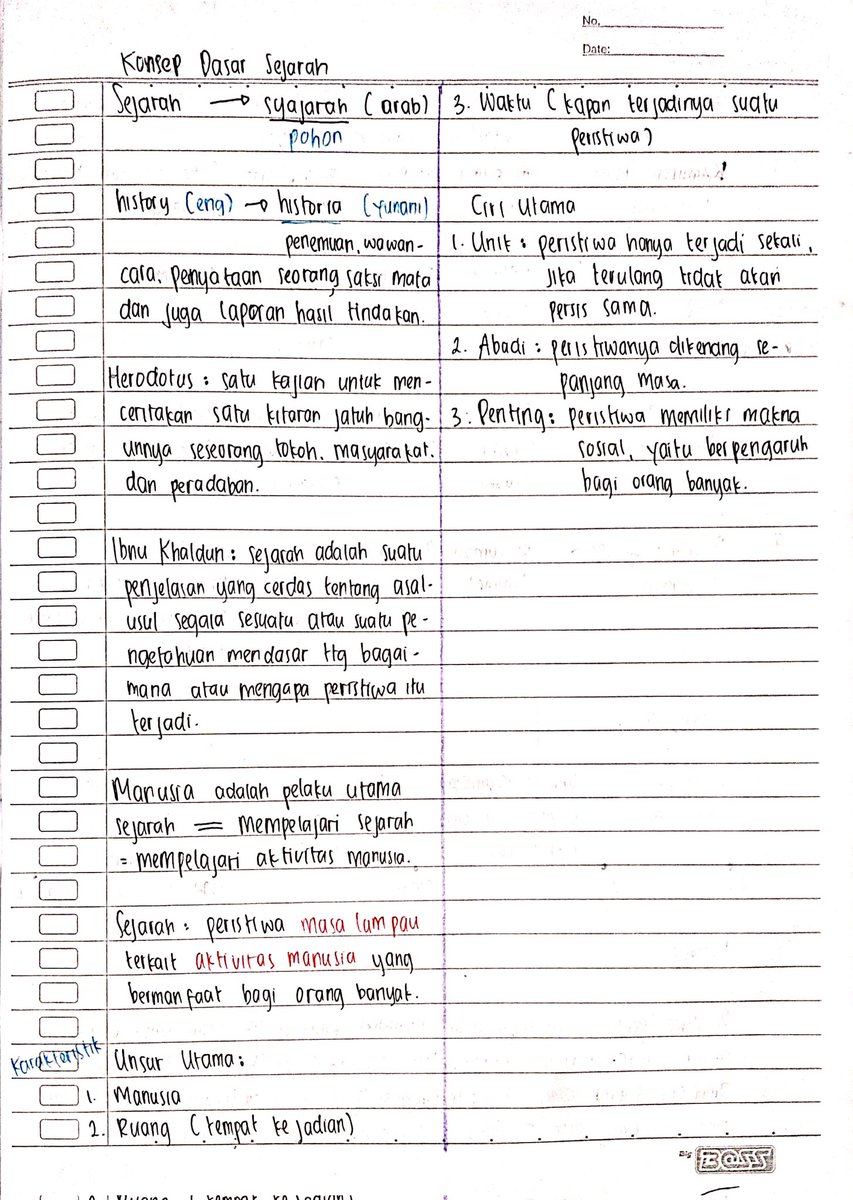 No.
Date:
Konsep Dasar Sejarah
Sejarah → syajarah (arab)
pohon
history (eng) → historia (Yunani)
penemuan, wawan-
cara, penyataan seorang saksi mata
dan juga laporan hasil tindakan.
Herodotus : satu kajian untuk men-
ceritakan satu kitaran jatuh bang-
unnya seseorang tokoh, masyarakat.
dan peradaban.
Ibnu Khaldun : sejarah adalah suatu
penjelasan yang cerdas tentang asal-
usul segala sesuatu atau suatu pe-
ngetahuan mendasar ttg bagai-
mana atau mengapa peristiwa itu
terjadi.
Manusia adalah pelaku utama
sejarah = mempelajari sejarah
= mempelajari aktivitas manusia.
Sejarah : peristiwa masa lampau
terkait aktivitas manusia yang
bermanfaat bagi orang banyak.
Karakteristik
Unsur Utama :
1. Manusia
2. Ruang (tempat kejadian)
3. Waktu (kapan terjadinya suatu
peristiwa)
Ciri Utama
1. Unik : peristiwa hanya terjadi sekali,
jika terulang tidak akan
persis sama.
2. Abadi : peristiwanya dikenang se-
panjang masa.
3. Penting : peristiwa memiliki makna
sosial, yaitu berpengaruh
bagi orang banyak.
Big BOSS